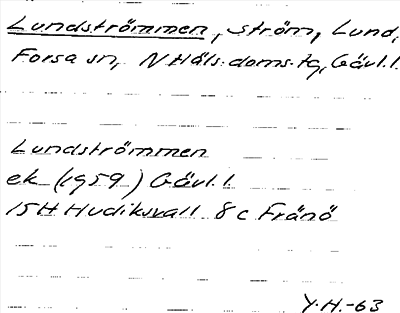 Lundströmmen, ström, Lund,
Forsa sn, N Häls. doms.tg, Gävl.l.
Lundströmmen
ek (1959) Gävl.l.
15H Hudiksvall 8c Frånö
Y.H.-63